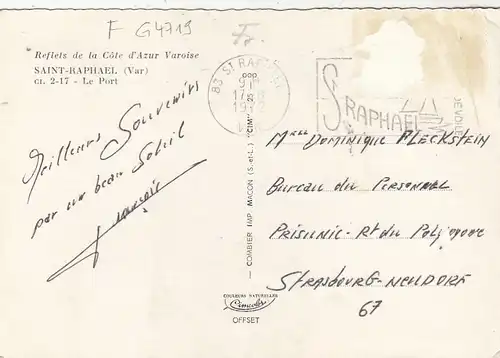 F G4719
Reflets de la Côte d'Azur Varoise
SAINT-RAPHAEL (Var)
CL 2-17 - Le Port
Meilleurs Souvenirs
par un beau Soleil
83 ST RAPHAEL
ST RAPHAEL
COMBIER IMP. MACON (S.-et-L.) "CIM"
COULEURS NATURELLES
Cimcolor
OFFSET
Melle DOMINIQUE FLECKSTEIN
BUREAU DU PERSONNEL
PRISUNIC - Rt du Polygone
STRASBOURG-NEUDORF
67